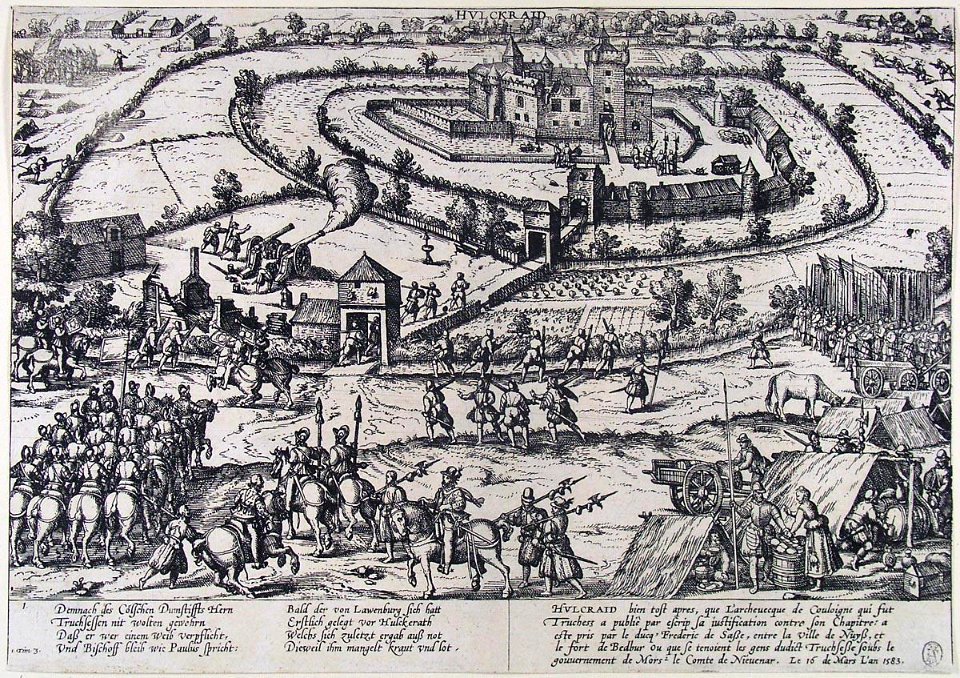 HVLCKRAID
1
Demnach des Cölschen Dumstiffts Hern
Truchsessen nit wolten gewehrn
Daß er wer einem Weib verpflicht,
Vnd Bischoff bleib wie Paulus spricht:
1. Tim 3.
Bald der von Lawenburg sich hatt
Erstlich gelegt vor Hulckerath
Welchs sich zuletzt ergab auß not
Dieweil ihm mangelt kraut vnd lot.
HVLCRAID bien tost apres, que L'archeuecque de Couloigne qui fut
Truchess a publie par escrip sa iustification contre son Chapitre: a
este pris par le ducq Frederic de Saße, entre la Ville de Nuyß, et
le fort de Bedbur ou que se tenoient les gens dudict Truchsesse soubs le
gouuernement de Mors: le Comte de Nieuenar. Le 16 de Mars L'an 1583.